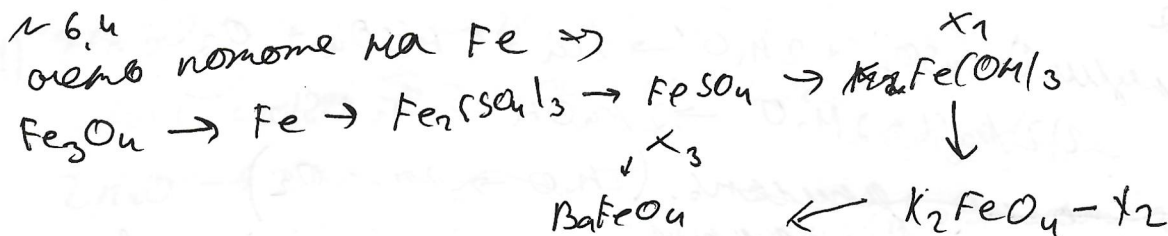 № 6.4
очень похоже на Fe =>
X1
Fe3O4 → Fe → Fe2(SO4)3 → FeSO4 → Fe(OH)3
↓
X3
BaFeO4 ← K2FeO4 - X2